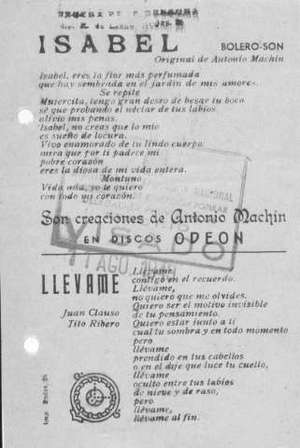 ISABEL
BOLERO-SON
Original de Antonio Machin
Isabel, eres la flor más perfumada
que hay sembrada en el jardín de mis amores.
Se repite
Mujercita, tengo gran deseo de besar tu boca
sé que probando el néctar de tus labios
alivio mis penas.
Isabel, no creas que lo mío
es sueño de locura.
Vivo enamorado de tu lindo cuerpo
mira que por ti padece mi
pobre corazón
eres la diosa de mi vida entera.
Montuno
Vida mía, yo te quiero
con todo mi corazón.
Son creaciones de Antonio Machin
EN DISCOS ODEON
LLEVAME
Juan Clauso
Tito Ribero
Llévame,
contigo en el recuerdo.
Llévame,
no quiero que me olvides.
Quiero ser el motivo invisible
de tu pensamiento.
Quiero estar junto a ti
cual tu sombra y en todo momento
pero
llévame
prendido en tus cabellos
o en el dije que luce tu cuello,
llévame
oculto entre tus labios
de nieve y de raso,
pero
llévame,
llévame al fin.
VISADO
AGO.